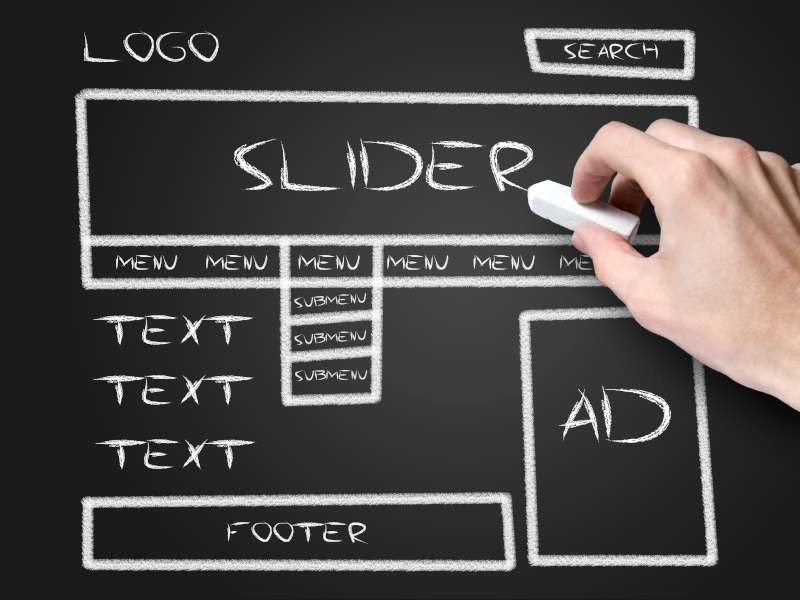 LOGO
SEARCH
SLIDER
MENU MENU MENU MENU MENU
SUBMENU
SUBMENU
SUBMENU
TEXT
TEXT
TEXT
AD
FOOTER